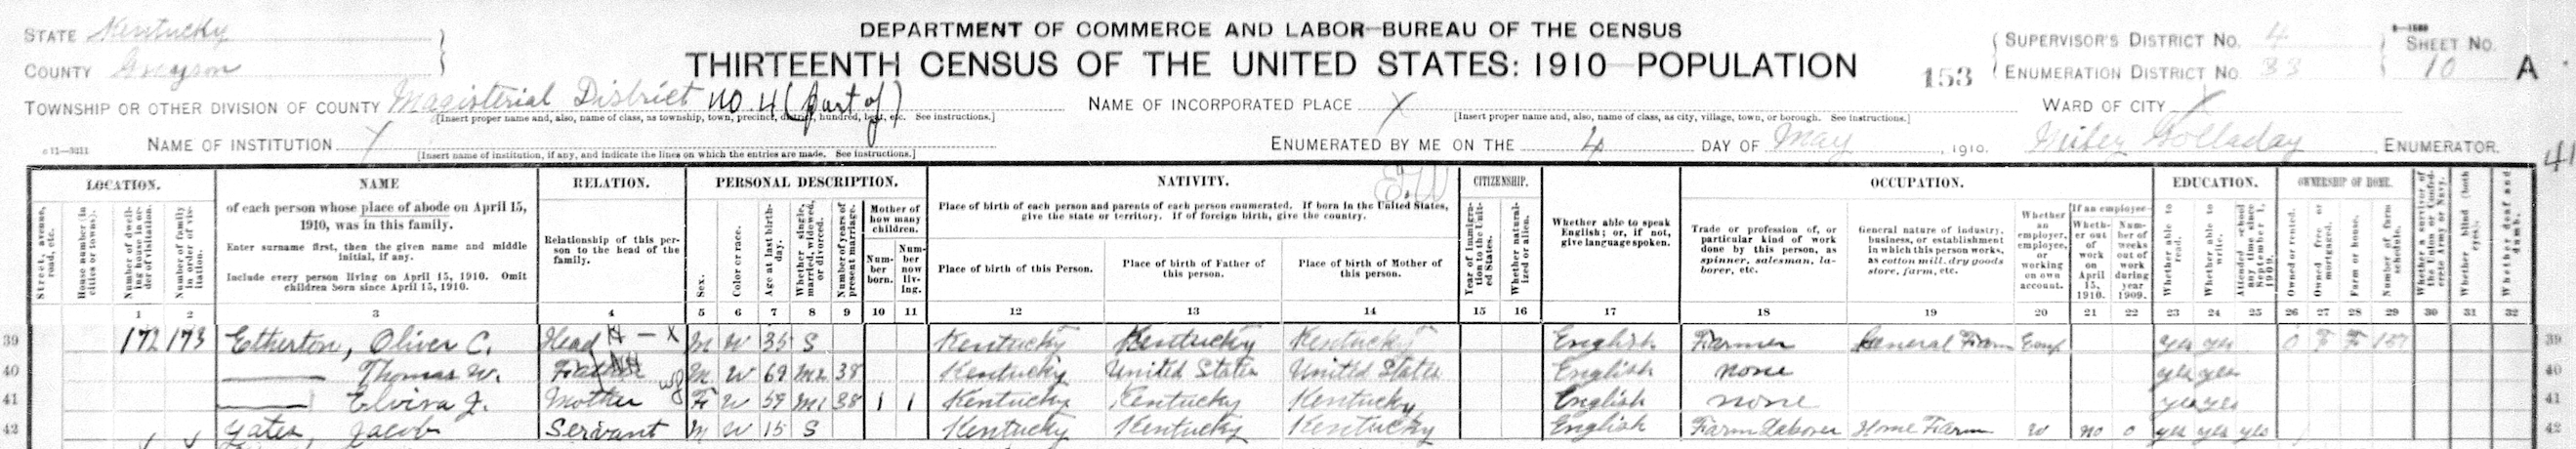 DEPARTMENT OF COMMERCE AND LABOR—BUREAU OF THE CENSUS
THIRTEENTH CENSUS OF THE UNITED STATES: 1910 POPULATION
STATE Kentucky
COUNTY Grayson
TOWNSHIP OR OTHER DIVISION OF COUNTY Magisterial District no. 4 (part of)
[Insert proper name and, also, name of class, as township, town, precinct, district, hundred, beat, etc. See instructions.]
NAME OF INSTITUTION X
[Insert name of institution, if any, and indicate the lines on which the entries are made. See instructions.]
NAME OF INCORPORATED PLACE X
[Insert proper name and, also, name of class, as city, village, town, or borough. See instructions.]
ENUMERATED BY ME ON THE 4 DAY OF May, 1910. Golladay, ENUMERATOR.
153
SUPERVISOR'S DISTRICT No. 4
ENUMERATION DISTRICT No. 33
SHEET No.
10 A
WARD OF CITY X
41
LOCATION.
Street, avenue, road, etc.
House number (in cities or towns).
Number of dwelling house in order of visitation.
Number of family in order of visitation.
NAME
of each person whose place of abode on April 15, 1910, was in this family.
Enter surname first, then the given name and middle initial, if any.
Include every person living on April 15, 1910. Omit children born since April 15, 1910.
RELATION.
Relationship of this person to the head of the family.
PERSONAL DESCRIPTION.
Sex.
Color or race.
Age at last birthday.
Whether single, married, widowed, or divorced.
Number of years of present marriage.
Mother of how many children.
Number born.
Number now living.
NATIVITY.
Place of birth of each person and parents of each person enumerated. If born in the United States, give the state or territory. If of foreign birth, give the country.
Place of birth of this Person.
Place of birth of Father of this person.
Place of birth of Mother of this person.
CITIZENSHIP.
Year of immigration to the United States.
Whether naturalized or alien.
Whether able to speak English; or, if not, give language spoken.
OCCUPATION.
Trade or profession of, or particular kind of work done by this person, as spinner, salesman, laborer, etc.
General nature of industry, business, or establishment in which this person works, as cotton mill, dry goods store, farm, etc.
Whether an employer, employee, or working on own account.
If an employee—
Whether out of work on April 15, 1910.
Number of weeks out of work during year 1909.
EDUCATION.
Whether able to read.
Whether able to write.
Attended school any time since September 1, 1909.
OWNERSHIP OF HOME.
Owned or rented.
Owned free or mortgaged.
Farm or house.
Number of farm schedule.
Whether a survivor of the Union or Confederate Army or Navy.
Whether blind (both eyes).
Whether deaf and dumb.
1 2 3 4 5 6 7 8 9 10 11 12 13 14 15 16 17 18 19 20 21 22 23 24 25 26 27 28 29 30 31 32
39 172 173 Etherton, Oliver C. Head M W 35 S Kentucky Kentucky Kentucky English Farmer General Farm Emp yes yes O F F 39
40 —— Thomas W. Father M W 69 M2 38 Kentucky United States United States English none yes yes 40
41 —— Elvira J. Mother F W 59 M1 38 1 1 Kentucky Kentucky Kentucky English none yes yes 41
42 Yates, Jacob Servant M W 15 S Kentucky Kentucky Kentucky English Farm Laborer Home Farm W no 0 yes yes yes 42